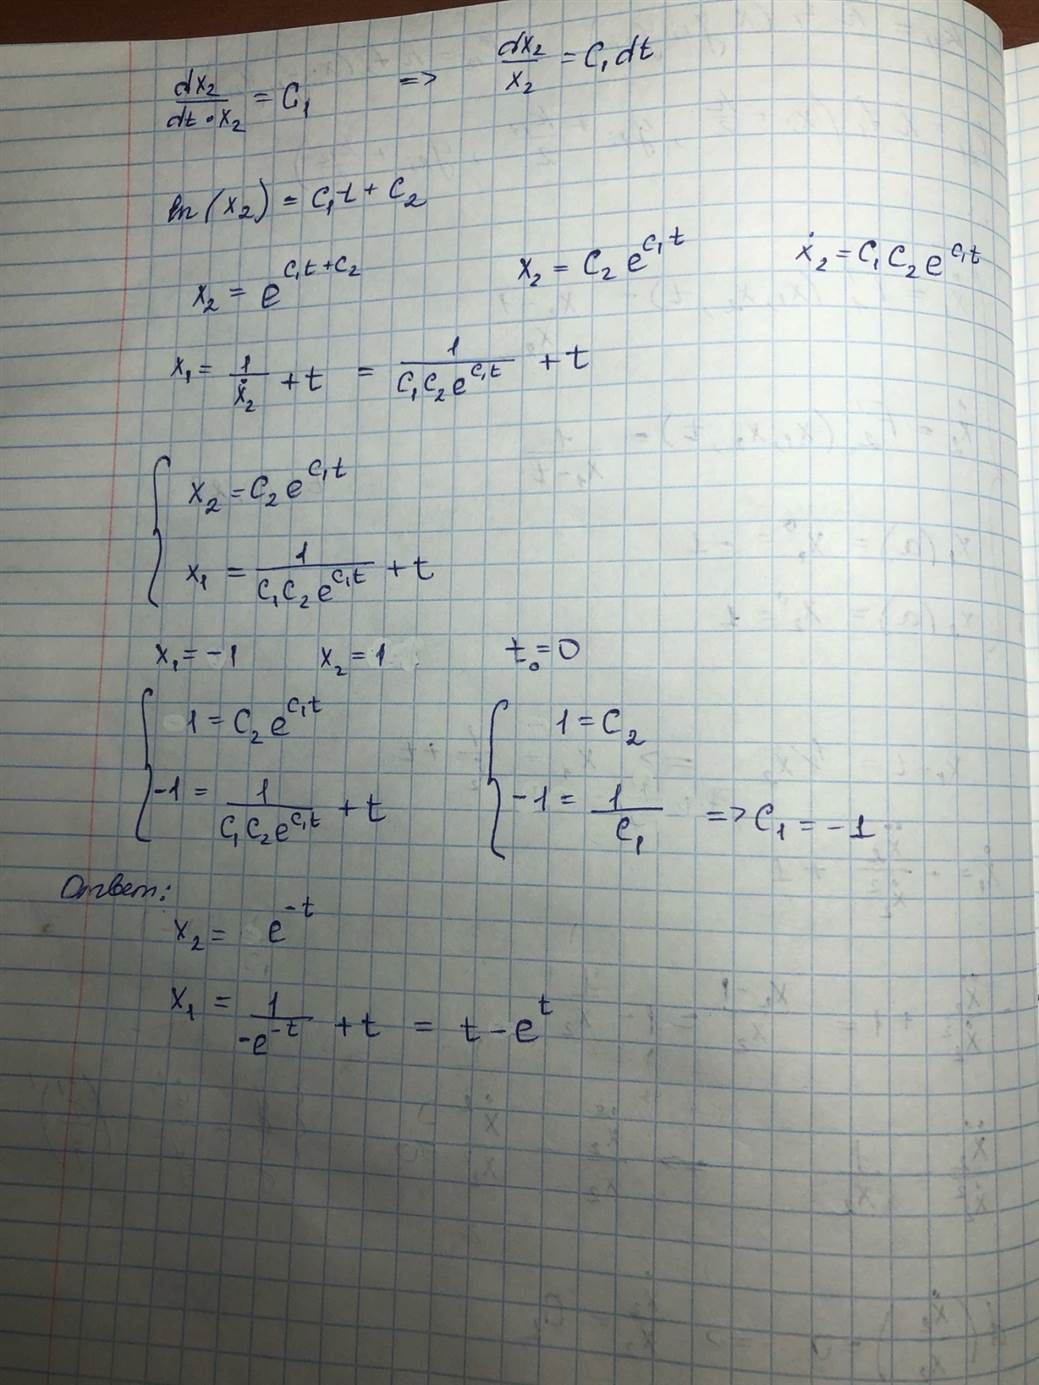 dx₂/(dt·x₂) = C₁ => dx₂/x₂ = C₁dt
ln(x₂) = C₁t + C₂
x₂ = e^(C₁t+C₂) x₂ = C₂e^(C₁t) ẋ₂ = C₁C₂e^(C₁t)
x₁ = 1/ẋ₂ + t = 1/(C₁C₂e^(C₁t)) + t
x₂ = C₂e^(C₁t)
x₁ = 1/(C₁C₂e^(C₁t)) + t
x₁ = -1 x₂ = 1 t₀ = 0
1 = C₂e^(C₁t) 1 = C₂
-1 = 1/(C₁C₂e^(C₁t)) + t -1 = 1/C₁ => C₁ = -1
Ответ:
x₂ = e^(-t)
x₁ = 1/(-e^(-t)) + t = t - e^t